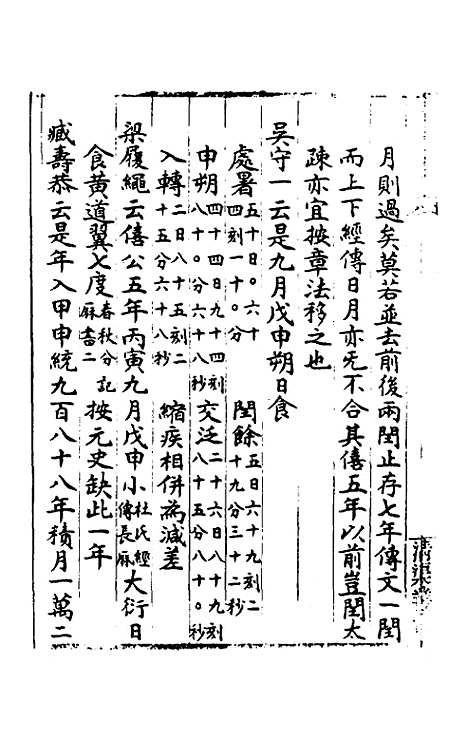 月則過矣莫若並去前後兩閏止存七年傳文一閏
而上下經傳日月亦无不合其僖五年以前豈閏太
疎亦宜按章法移之也
吳守一云是九月戊申朔日食
處暑五十日。六十四刻一十。分　閏餘五日六十九刻二十九分三十二秒
申朔四十四日九十四刻八十。分六十八秒　交泛二十六日八十九刻八十五分八十。秒
入轉二日八十五刻二十五分六十八秒　縮疾相併為減差
梁履繩云僖公五年丙寅九月戊申小杜氏經傳長厤大衍日
食黃道翼七度春秋分記厤書二按元史缺此一年
臧壽恭云是年入甲申統九百八十八年積月一萬二